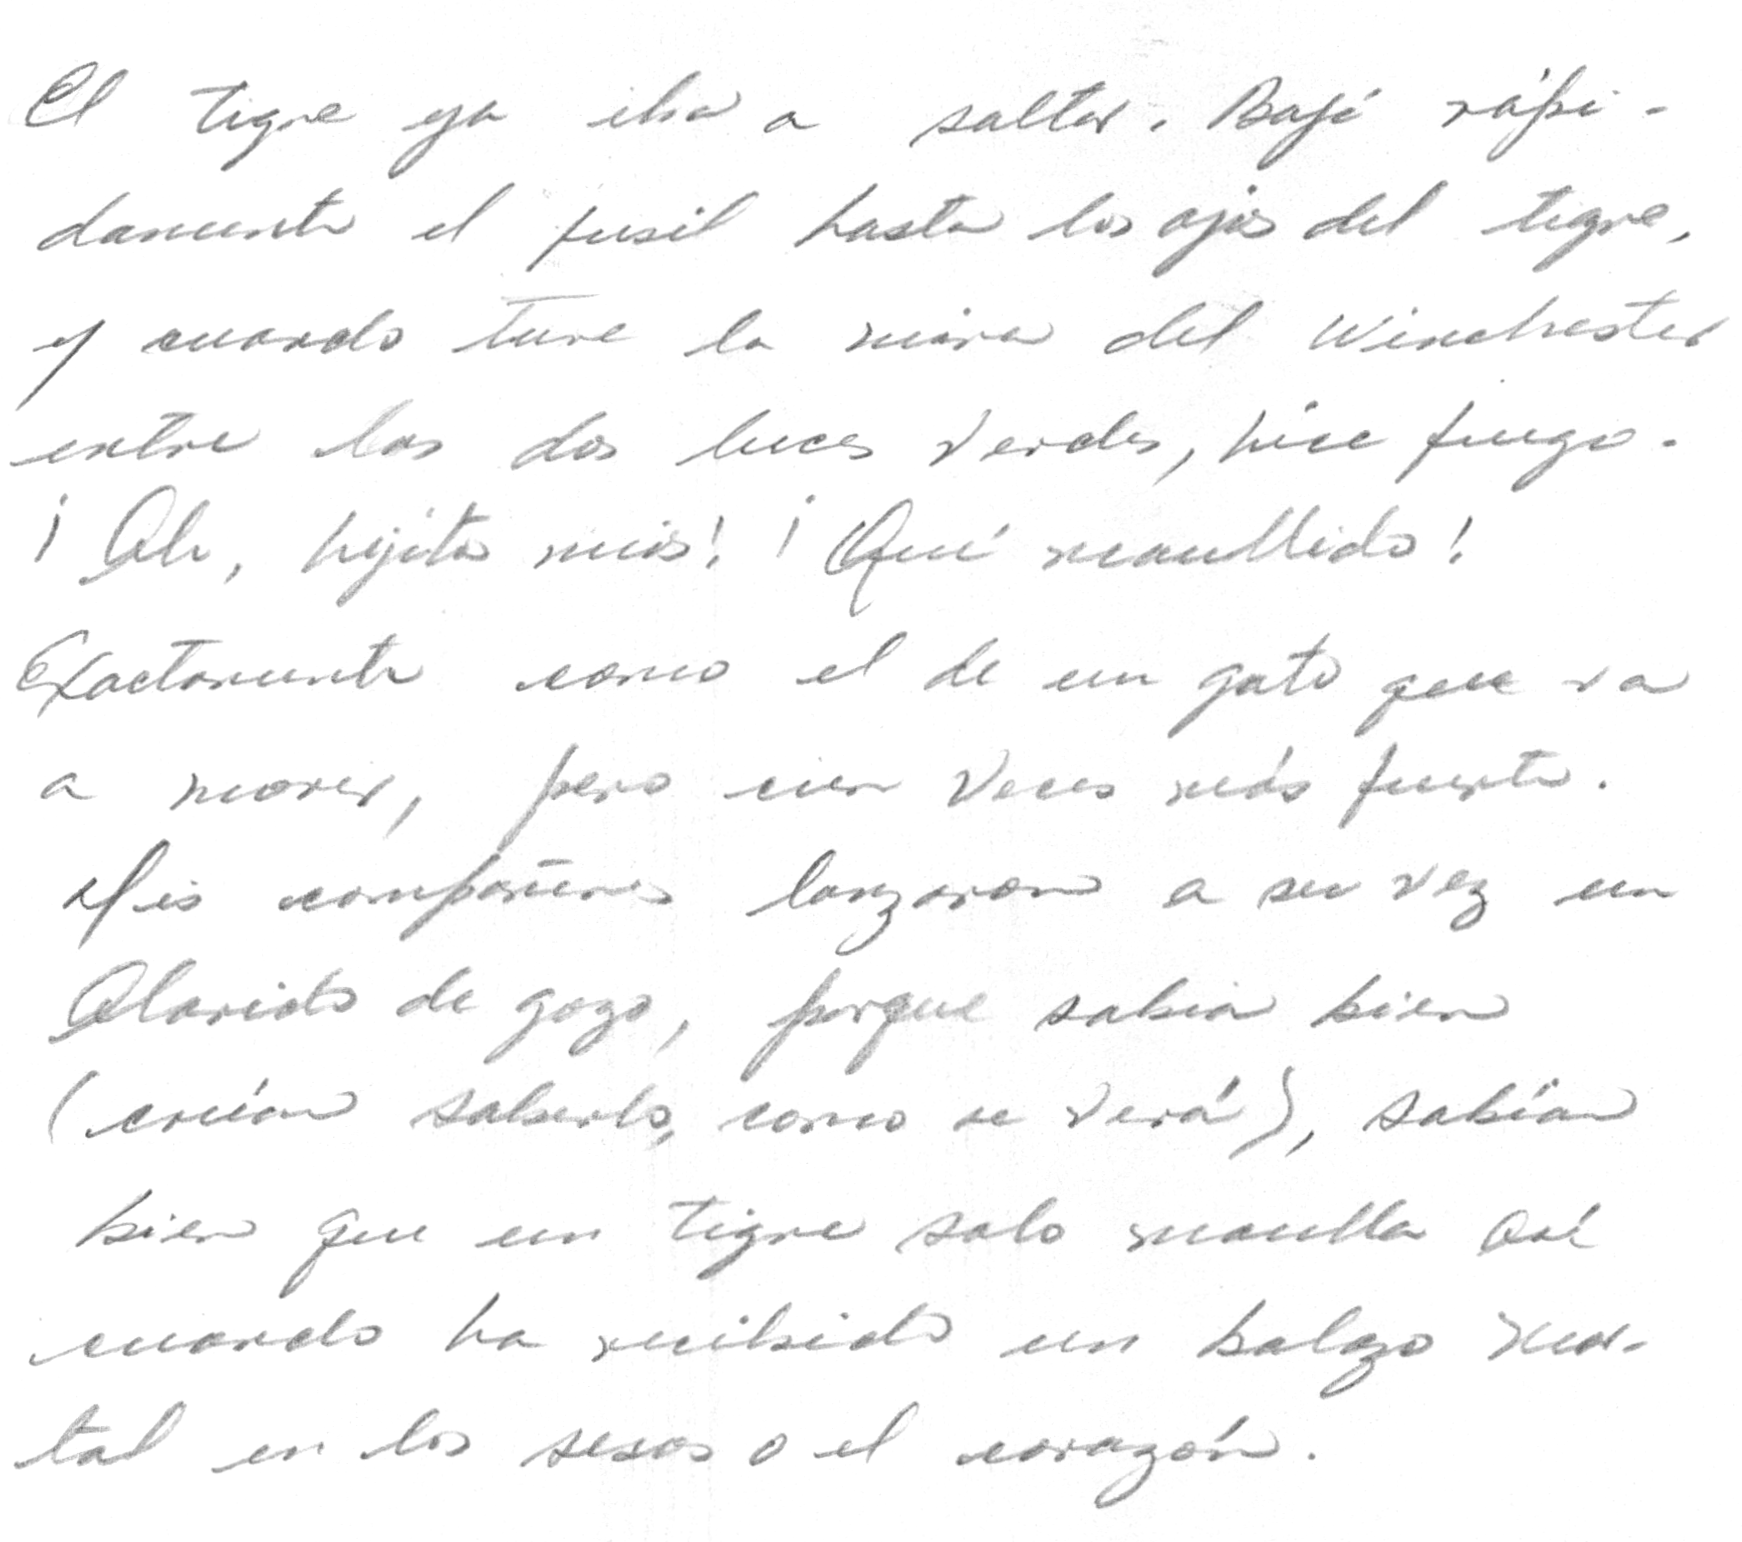 El tigre ya iba a saltar. Bajé rápi-
damente el fusil hasta los ojos del tigre,
y cuando tuve la mira del Winchester
entre las dos luces verdes, hice fuego.
¡Ah, hijitos mios! ¡Qué maullido!
Exactamente como el de un gato que va
a morir, pero cien veces más fuerte.
Mis compañeros lanzaron a su vez un
alarido de gozo, porque sabian bien
(creían saberlo, como se verá), sabían
bien que un tigre solo maulla así
cuando ha recibido un balazo mor-
tal en los sesos o el corazón.